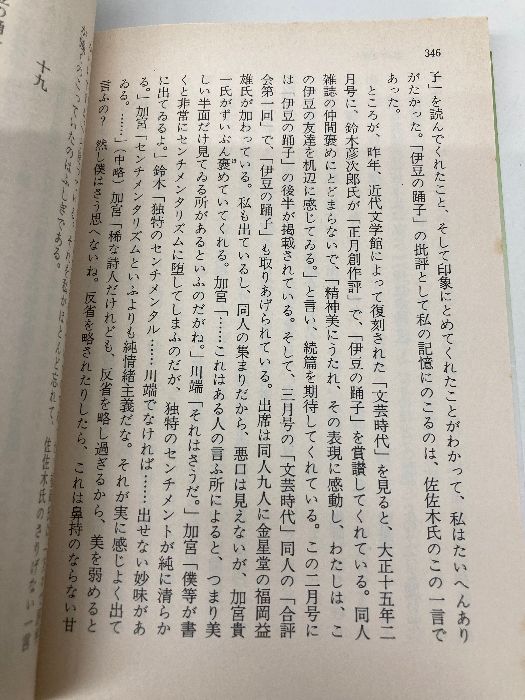 346
子」を読んでくれたこと、そして印象にとめてくれたことがわかって、私はたいへんあり
がたかった。「伊豆の踊子」の批評として私の記憶にのこるのは、佐佐木氏のこの一言で
あった。
ところが、昨年、近代文学館によって復刻された「文芸時代」を見ると、大正十五年二
月号に、鈴木彦次郎氏が「正月創作評」で、「伊豆の踊子」を賞讃してくれている。同人
雑誌の仲間褒めにとどまらないで、「精神美にうたれ、その表現に感動し、わたしは、こ
の伊豆の友達を机辺に感じてゐる。」と言い、続篇を期待してくれている。この二月号に
は「伊豆の踊子」の後半が掲載されている。そして、三月号の「文芸時代」同人の「合評
会第一回」で、「伊豆の踊子」も取りあげられている。出席は同人九人に金星堂の福岡益
雄氏が加わっている。私も出ているし、同人の集まりだから、悪口は見えないが、加宮貴
一氏がずいぶん褒めていてくれる。加宮「……これはある人の言ふ所によると、つまり美
しい半面だけ見てゐる所があるといふのだがね。」川端「それはさうだ。」加宮「僕等が書
くと非常にセンチメンタリズムに堕してしまふのだが、独特のセンチメントが純に清らか
に出てゐるよ。」鈴木「独特のセンチメンタル……川端でなければ……出せない妙味があ
る。」加宮「センチメンタリズムといふよりも純情緒主義だな。それが実に感じよく出て
ゐる。……」(中略)加宮「稀な詩人だけれども、反省を略し過ぎるから、美を弱めると
言ふの? 然し僕はさう思へないね。反省を略されたりしたら、これは鼻持のならない甘
十九
のはふしぎである。